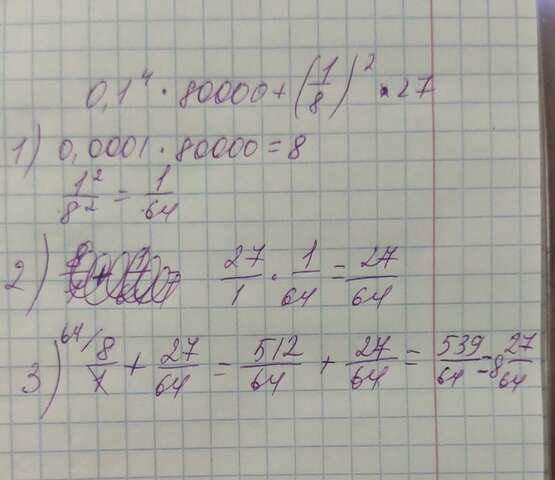 0,1⁴ · 80000 + (1/8)² · 27
1) 0,0001 · 80000 = 8
1²/8² = 1/64
2) 27/1 · 1/64 = 27/64
3) 64/ 8/1 + 27/64 = 512/64 + 27/64 = 539/64 = 8 27/64